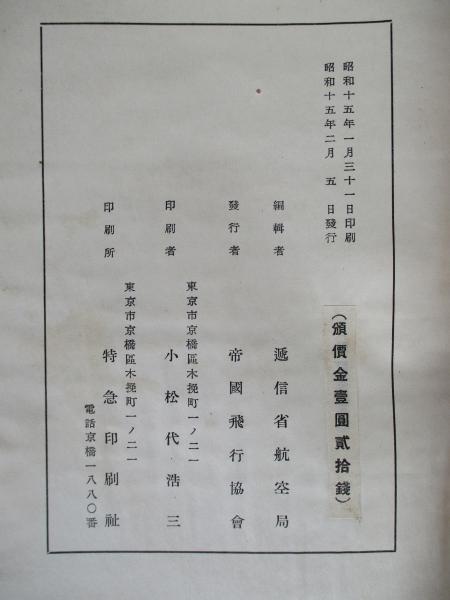 昭和十五年一月三十一日印刷
昭和十五年二月五日發行
(頒價金壹圓貳拾錢)
編輯者 遞信省航空局
發行者 帝國飛行協會
東京市京橋區木挽町一ノ二一
印刷者 小松代浩三
東京市京橋區木挽町一ノ二一
印刷所 特急印刷社
電話京橋一八八〇番